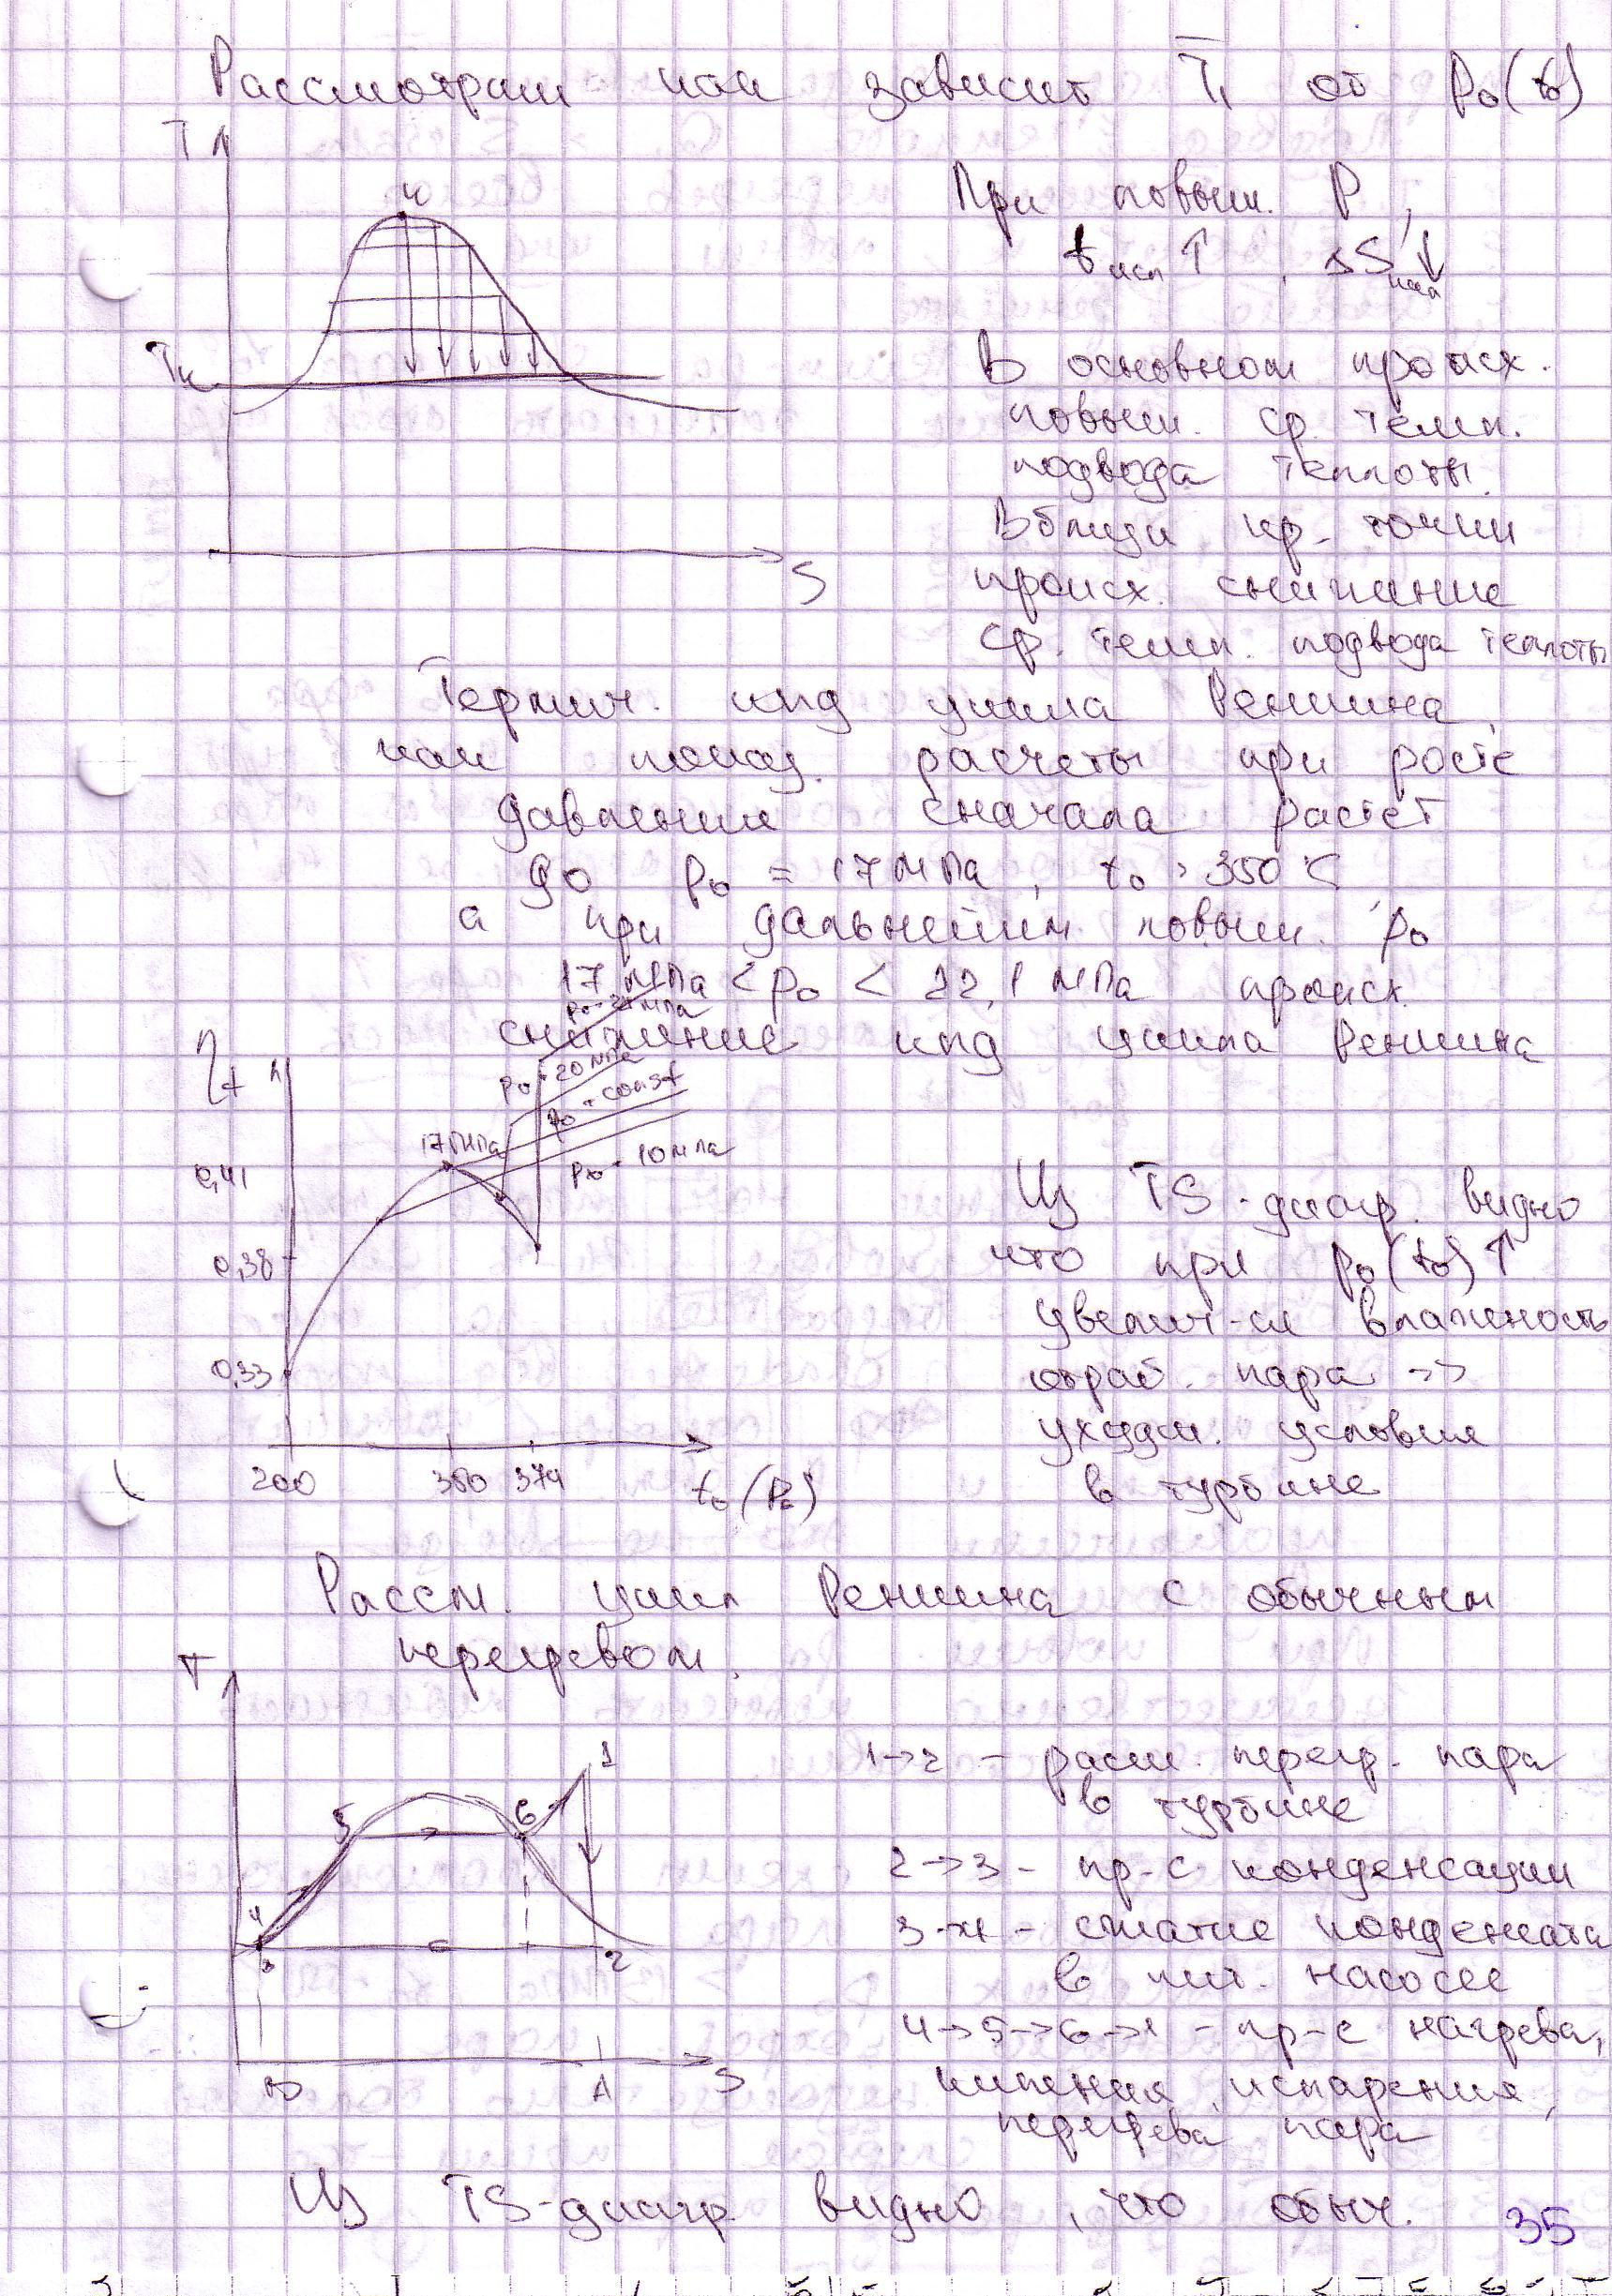 Рассмотрим как зависит T̅₁ от p₀(t₀)
T
К
Tк
S
При повыш. P,
tисп ↑, ΔSисп ↓
В основном происх.
повыш. ср. темп.
подвода теплоты.
Вблизи кр. точки
происх. снижение
ср. темп. подвода теплоты
Термич. кпд цикла Ренкина,
как показ. расчеты при росте
давления сначала растет
до p₀ = 17 МПа, t₀ > 350 °C
а при дальнейшем повыш. p₀
17 МПа < p₀ < 22,1 МПа происх.
снижение кпд цикла Ренкина
ηt
p₀ = 20 МПа
p₀ = const
17 МПа
p₀ = 10 МПа
0,41
0,38
0,33
200 350 374 t₀ (P₀)
Из TS-диагр. видно
что при p₀(t₀) ↑
увелич-ся влажность
отраб. пара =>
ухудш. условия
в турбине
Рассм. цикл Ренкина с обычным
перегревом.
T
1
5
6
4
3
2
B
A
S
1→2 – расш. перегр. пара
в турбине
2→3 – пр-с конденсации
3→4 – сжатие конденсата
в пит. насосе
4→5→6→1 – пр-с нагрева,
кипения, испарения,
перегрева пара
Из TS-диагр. видно, что обыч.
35